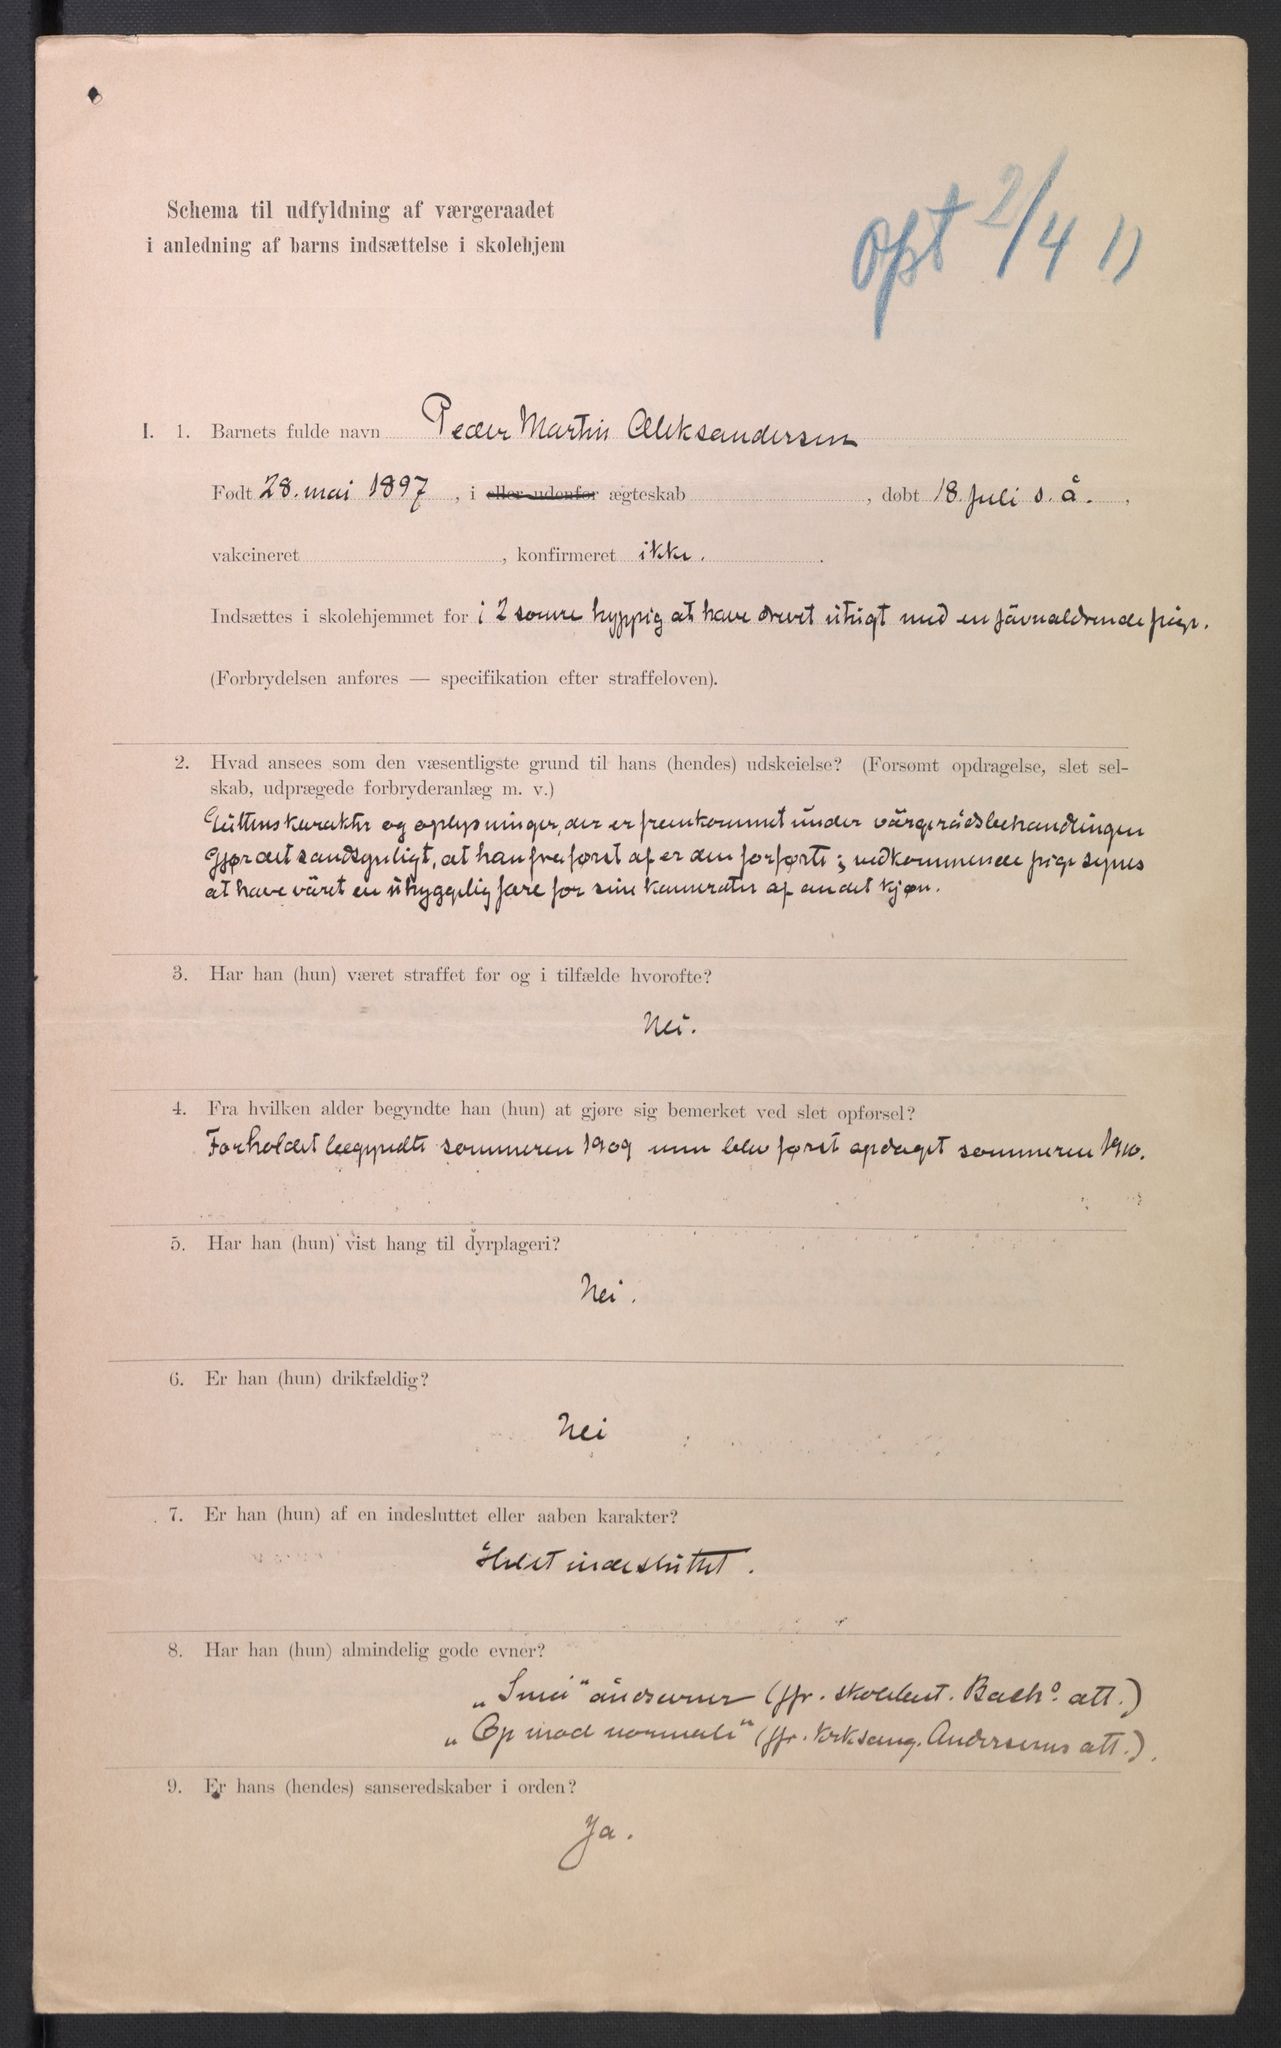 Schema til udfyldning af værgeraadet
i anledning af barns indsættelse i skolehjem
Opt 2/4 11
I. 1. Barnets fulde navn Peder Martin Aleksandersen
Født 28. mai 1897, i eller udenfor ægteskab , døbt 18. juli s. å.,
vakcineret , konfirmeret ikke.
Indsættes i skolehjemmet for i 2 somre hyppig at have drevet utugt med en jævnaldrende pige.
(Forbrydelsen anføres — specifikation efter straffeloven).
2. Hvad ansees som den væsentligste grund til hans (hendes) udskeielse? (Forsømt opdragelse, slet sel-
skab, udprægede forbryderanlæg m. v.)
Guttens karakter og oplysninger, der er fremkommet under värgerådsbehandlingen
gjør det sandsynligt, at han fra først af er den forførte; vedkommende pige synes
at have väret en uhyggelig fare for sine kamerater af andet kjøn.
3. Har han (hun) været straffet før og i tilfælde hvorofte?
Nei.
4. Fra hvilken alder begyndte han (hun) at gjøre sig bemerket ved slet opførsel?
Forholdet begyndte sommeren 1909 men blev først opdaget sommeren 1910.
5. Har han (hun) vist hang til dyrplageri?
Nei.
6. Er han (hun) drikfældig?
Nei
7. Er han (hun) af en indesluttet eller aaben karakter?
Helst indesluttet.
8. Har han (hun) almindelig gode evner?
„Små" åndsevner (jfr. skolebest. Bachs att.)
„Op mod normale" (jfr. kirksang. Andersens att.).
9. Er hans (hendes) sanseredskaber i orden?
Ja.